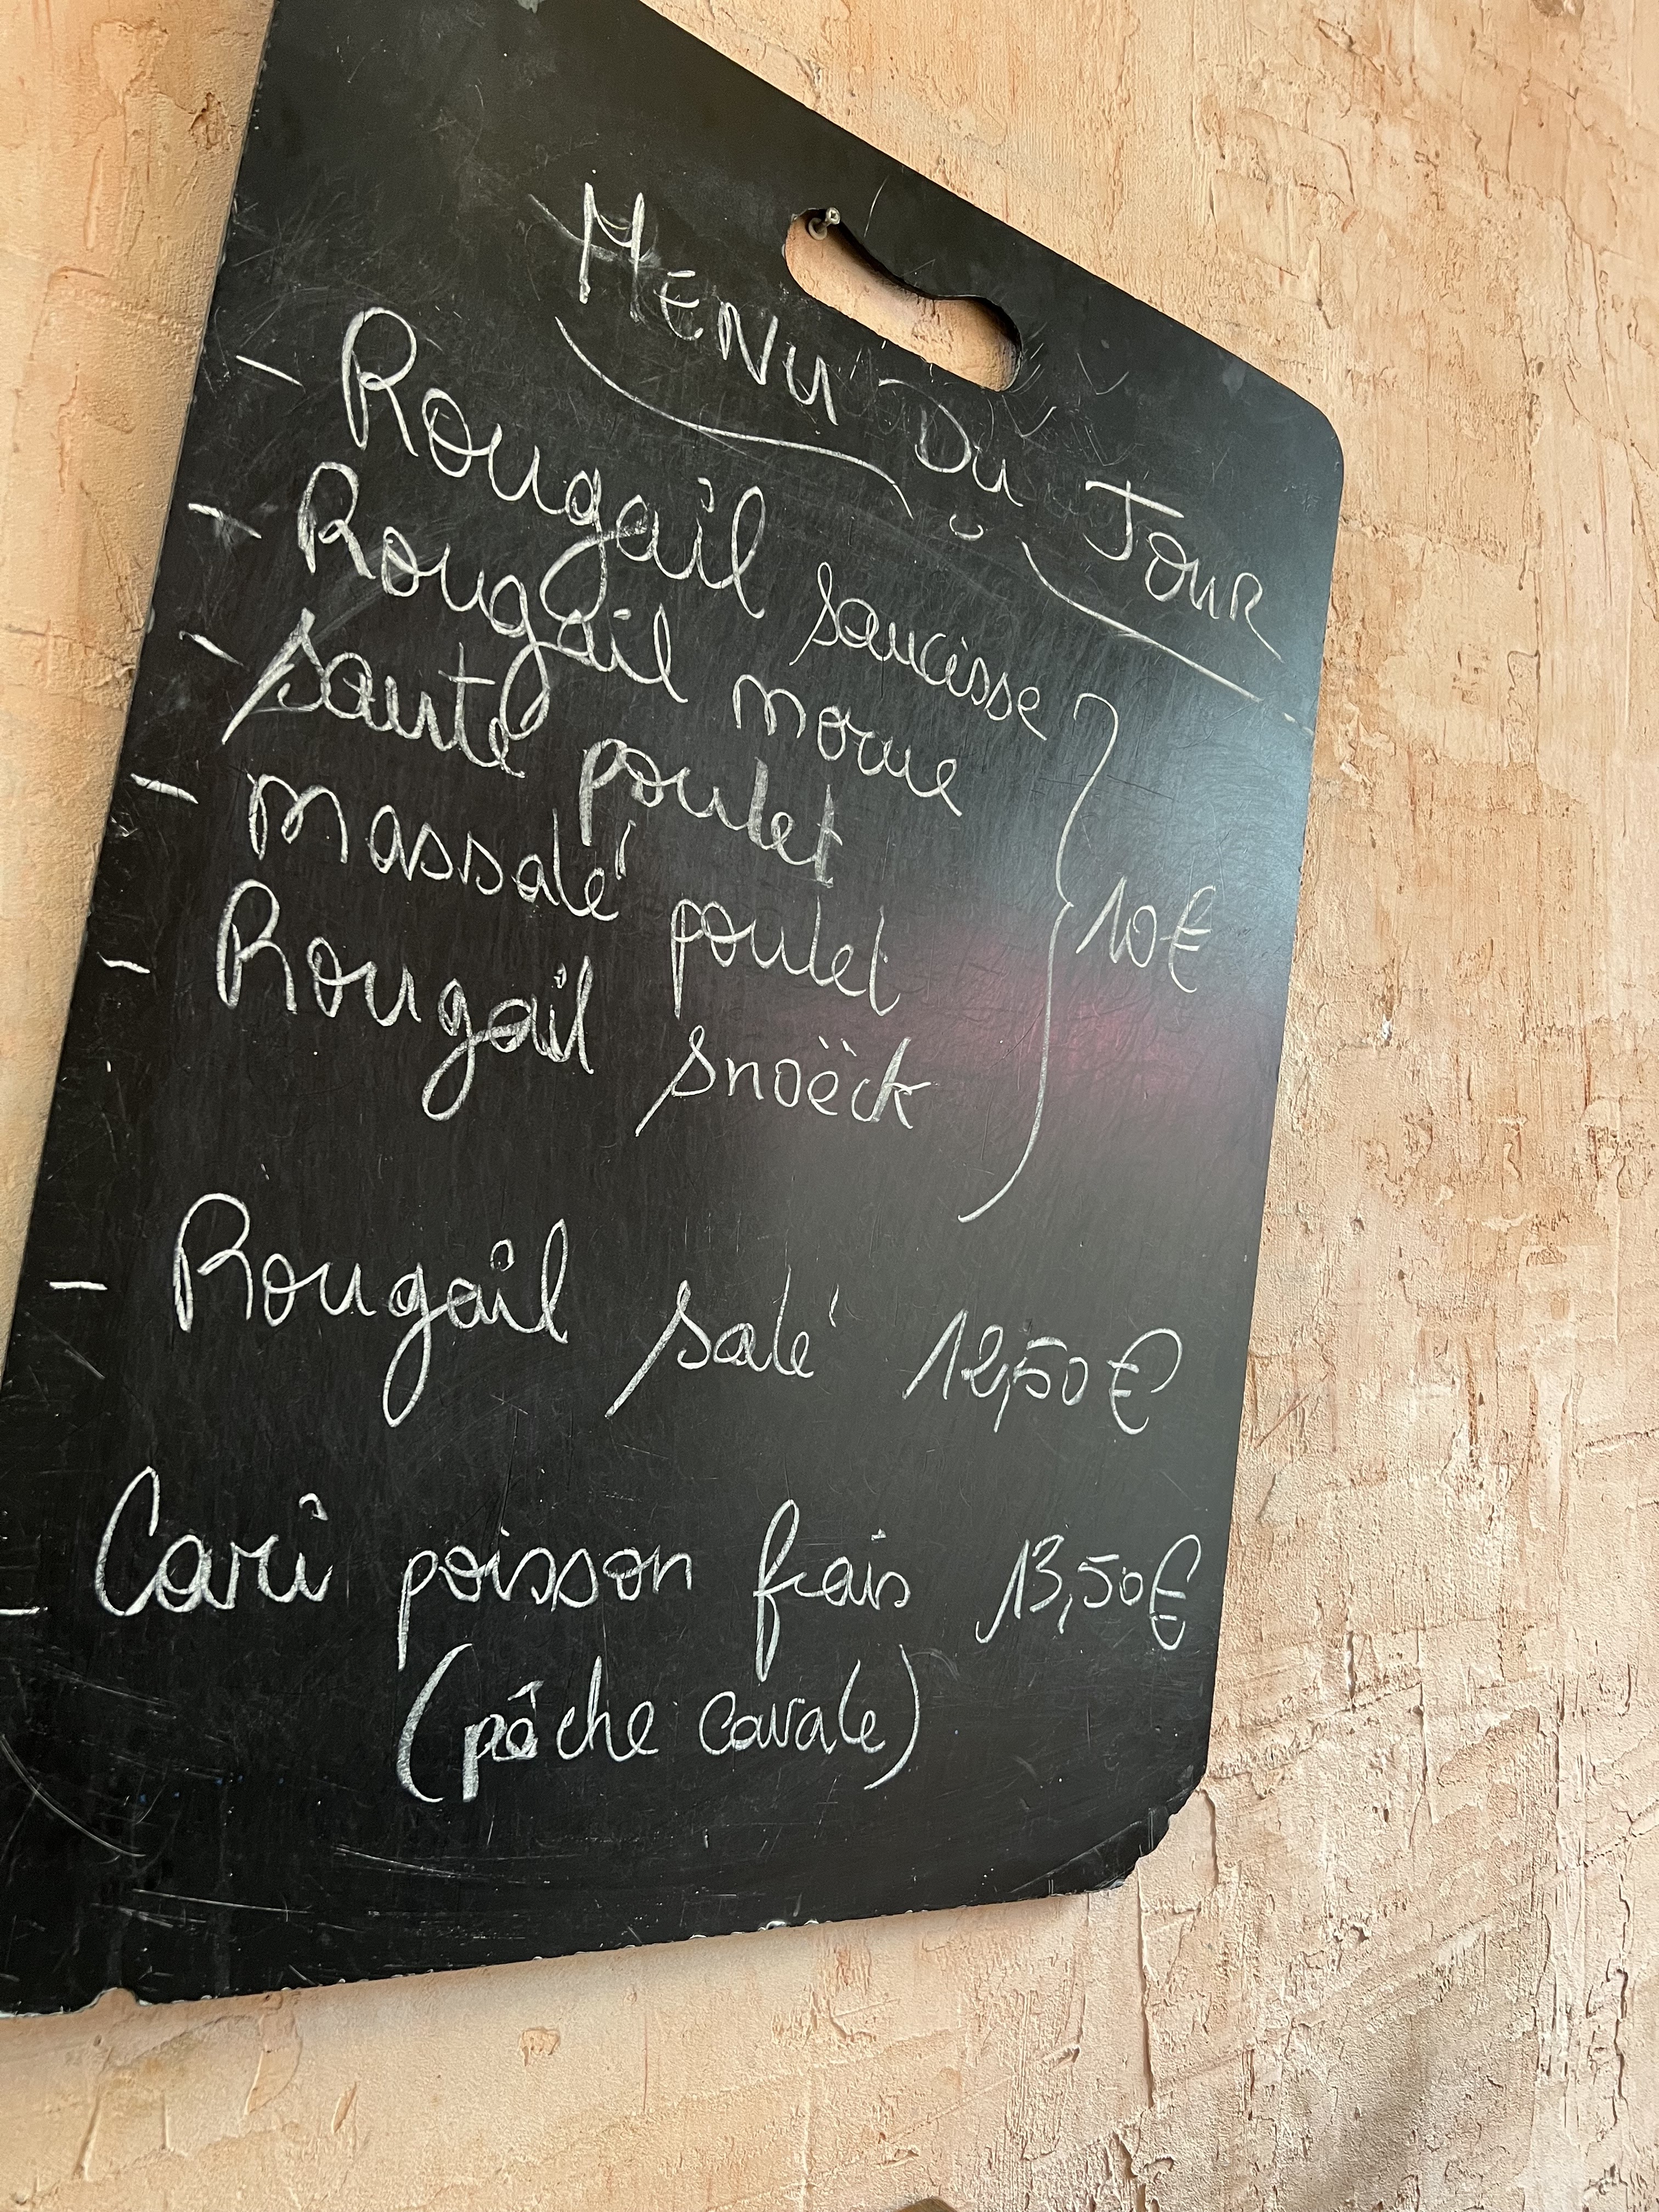 MENU DU JOUR
- Rougail saucisse
- Rougail morue
- Sauté poulet
- massalé poulet
- Rougail snoëck
10€
- Rougail salé 12,50€
- Cari poisson frais 13,50€
(pêche cavale)